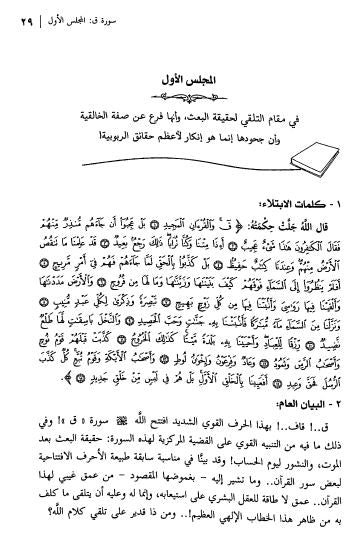 سورة ق: المجلس الأول | ٢٩
المجلس الأول
في مقام التلقي لحقيقة البعث، وأنها فرع عن صفة الخالقية
وأن جحودها إنما هو إنكار لأعظم حقائق الربوبية!
١ - كلمات الابتلاء:
قال اللَّه جَلَّتْ حِكْمَتُهُ: ﴿ قٓ وَالْقُرْءَانِ الْمَجِيدِ ۝ بَلْ عَجِبُوٓا أَن جَآءَهُم مُّنذِرٌ مِّنْهُمْ
فَقَالَ الْكَٰفِرُونَ هَٰذَا شَىْءٌ عَجِيبٌ ۝ أَءِذَا مِتْنَا وَكُنَّا تُرَابًا ذَٰلِكَ رَجْعٌ بَعِيدٌ ۝ قَدْ عَلِمْنَا مَا تَنقُصُ
الْأَرْضُ مِنْهُمْ وَعِندَنَا كِتَٰبٌ حَفِيظٌ ۝ بَلْ كَذَّبُوا بِالْحَقِّ لَمَّا جَآءَهُمْ فَهُمْ فِىٓ أَمْرٍ مَّرِيجٍ ۝
أَفَلَمْ يَنظُرُوٓا إِلَى السَّمَآءِ فَوْقَهُمْ كَيْفَ بَنَيْنَٰهَا وَزَيَّنَّٰهَا وَمَا لَهَا مِن فُرُوجٍ ۝ وَالْأَرْضَ مَدَدْنَٰهَا
وَأَلْقَيْنَا فِيهَا رَوَٰسِىَ وَأَنۢبَتْنَا فِيهَا مِن كُلِّ زَوْجٍۭ بَهِيجٍ ۝ تَبْصِرَةً وَذِكْرَىٰ لِكُلِّ عَبْدٍ مُّنِيبٍ ۝
وَنَزَّلْنَا مِنَ السَّمَآءِ مَآءً مُّبَٰرَكًا فَأَنۢبَتْنَا بِهِۦ جَنَّٰتٍ وَحَبَّ الْحَصِيدِ ۝ وَالنَّخْلَ بَاسِقَٰتٍ لَّهَا طَلْعٌ
نَّضِيدٌ ۝ رِّزْقًا لِّلْعِبَادِ وَأَحْيَيْنَا بِهِۦ بَلْدَةً مَّيْتًا كَذَٰلِكَ الْخُرُوجُ ۝ كَذَّبَتْ قَبْلَهُمْ قَوْمُ نُوحٍ
وَأَصْحَٰبُ الرَّسِّ وَثَمُودُ ۝ وَعَادٌ وَفِرْعَوْنُ وَإِخْوَٰنُ لُوطٍ ۝ وَأَصْحَٰبُ الْأَيْكَةِ وَقَوْمُ تُبَّعٍ كُلٌّ كَذَّبَ
الرُّسُلَ فَحَقَّ وَعِيدِ ۝ أَفَعَيِينَا بِالْخَلْقِ الْأَوَّلِ بَلْ هُمْ فِى لَبْسٍ مِّنْ خَلْقٍ جَدِيدٍ ۝ ﴾.
٢ - البيان العام:
ق..! قاف..! بهذا الحرف القوي الشديد افتتح اللَّه ﷻ سورة « ق »! وفي
ذلك ما فيه من التنبيه القوي على القضية المركزية لهذه السورة: حقيقة البعث بعد
الموت، والنشور ليوم الحساب! وقد بينَّا في مناسبة سابقة طبيعة الأحرف الافتتاحية
لبعض سور القرآن.. وما تشير إليه - بغموضها المقصود - من عمق غيبي لهذا
القرآن.. عمق لا طاقة للعقل البشري على استيعابه، وإنما له وعليه أن يتلقى ما كلف
به من ظاهر هذا الخطاب الإلهي العظيم!.. ومن ذا قدير على تلقي كلام اللَّه؟